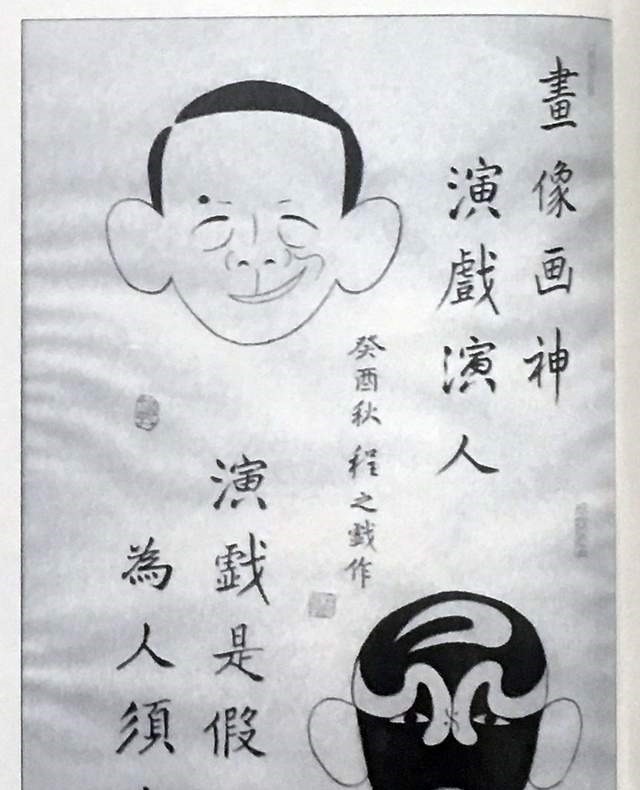 畫像画神
演戲演人
癸酉秋 程之戯作
演戯是假
為人須